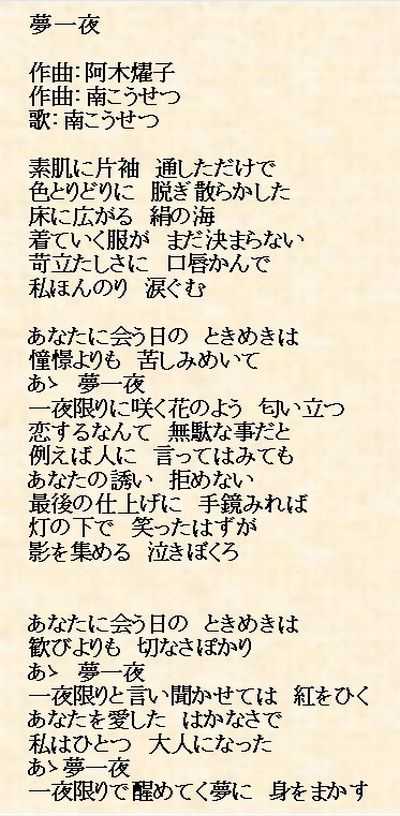 夢一夜
作曲：阿木燿子
作曲：南こうせつ
歌：南こうせつ
素肌に片袖　通しただけで
色とりどりに　脱ぎ散らかした
床に広がる　絹の海
着ていく服が　まだ決まらない
苛立たしさに　口唇かんで
私ほんのり　涙ぐむ
あなたに会う日の　ときめきは
憧憬よりも　苦しみめいて
あゝ　夢一夜
一夜限りに咲く花のよう　匂い立つ
恋するなんて　無駄な事だと
例えば人に　言ってはみても
あなたの誘い　拒めない
最後の仕上げに　手鏡みれば
灯の下で　笑ったはずが
影を集める　泣きぼくろ
あなたに会う日の　ときめきは
歓びよりも　切なさぽかり
あゝ　夢一夜
一夜限りと言い聞かせては　紅をひく
あなたを愛した　はかなさで
私はひとつ　大人になった
あゝ夢一夜
一夜限りで醒めてく夢に　身をまかす